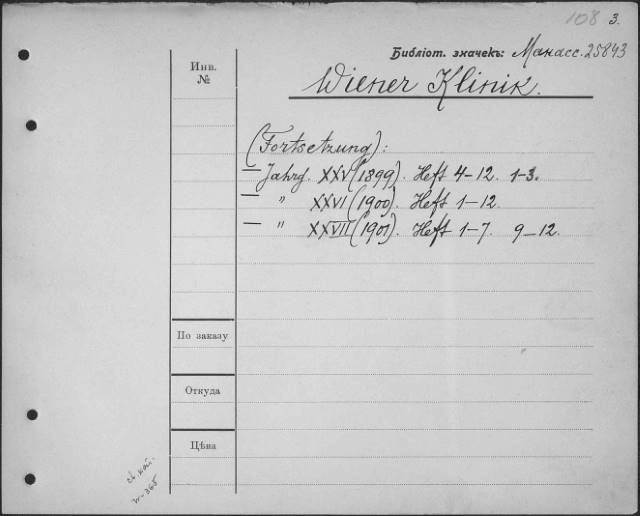 108 3.
Библіот. значекъ: Манасс. 25843
Инв.
№
Wiener Klinik.
(Fortsetzung):
— Jahrg. XXV (1899). Heft 4–12. 1–3.
— " XXVI (1900). Heft 1–12.
— " XXVII (1901). Heft 1–7. 9–12.
По заказу
Откуда
Цѣна